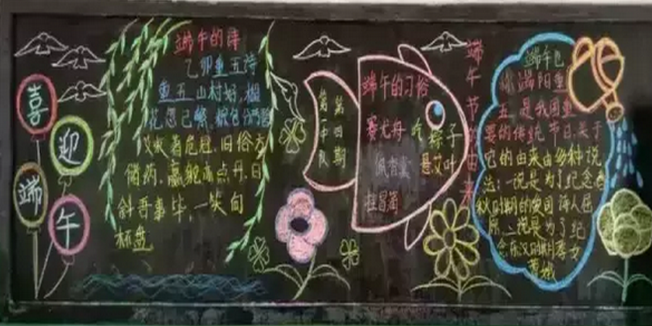 喜
迎
端
午
端午的诗
乙卯重五诗
重五山村好,榴
花忽已繁,粽包分两髻
艾束著危冠,旧俗方
储药,羸躯亦点丹,日
斜吾事毕,一笑向
杯盘
第四期
第一中队
端午的习俗
赛龙舟
吃粽子
佩香囊
悬艾叶
挂菖蒲
端午节的由来
端午也
称端阳重
五,是我国重
要的传统节日,关于
它的由来由多种说
法:一说是为了纪念春
秋时期的爱国诗人屈
原,一说是为了纪
念东汉时期孝女
曹娥